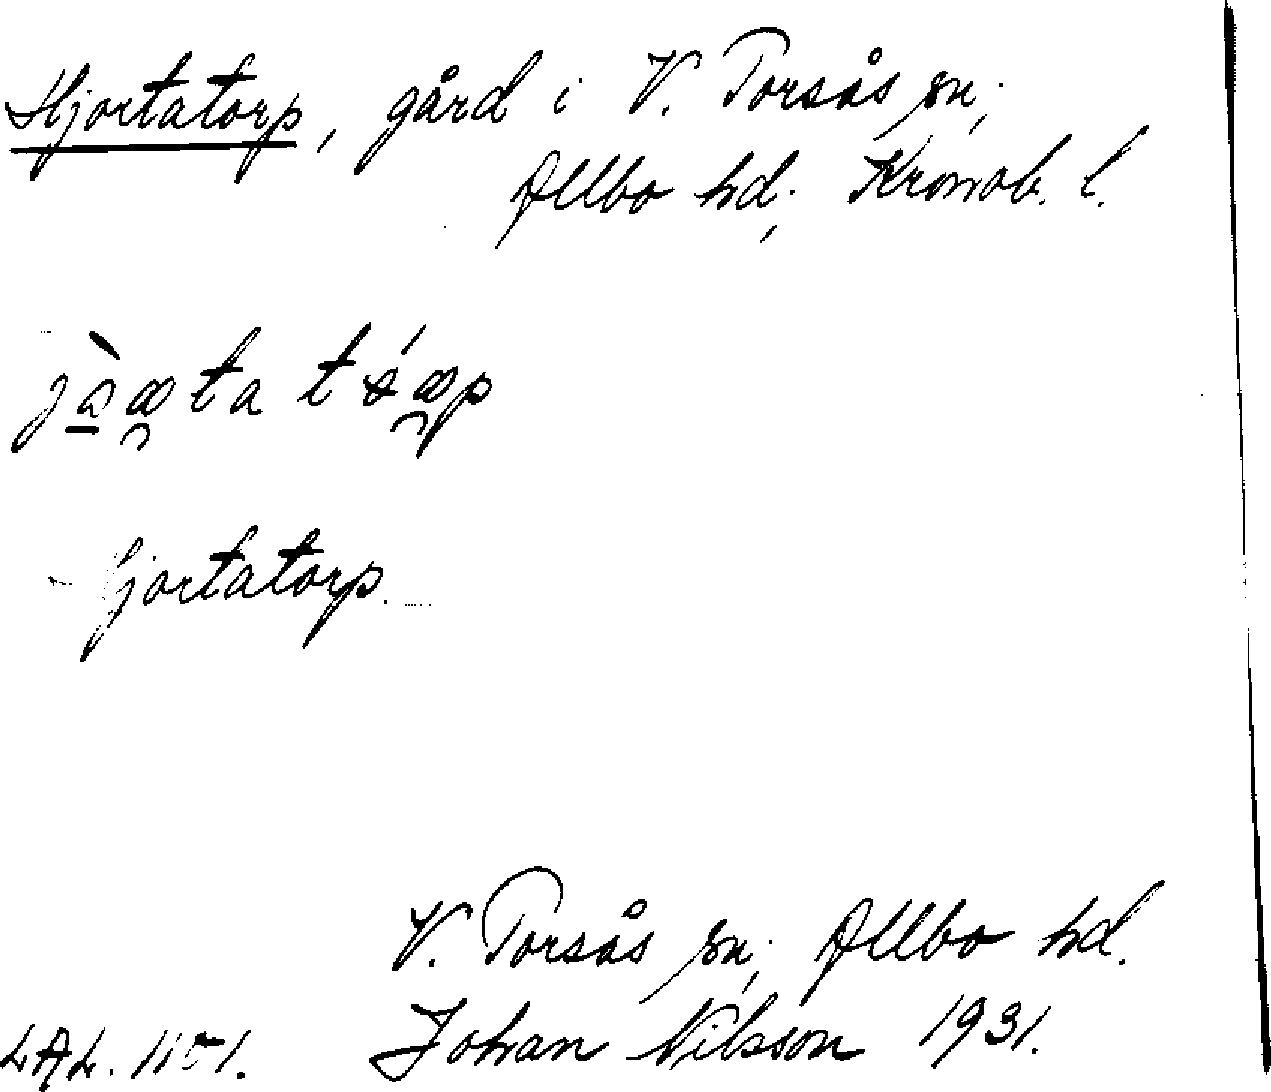 Hjortatorp, gård i V. Torsås sn;
Allbo hd; Kronob. l.
hjortatorp.
V. Torsås sn; Allbo hd.
LAL. 1151. Johan Nilsson 1931.